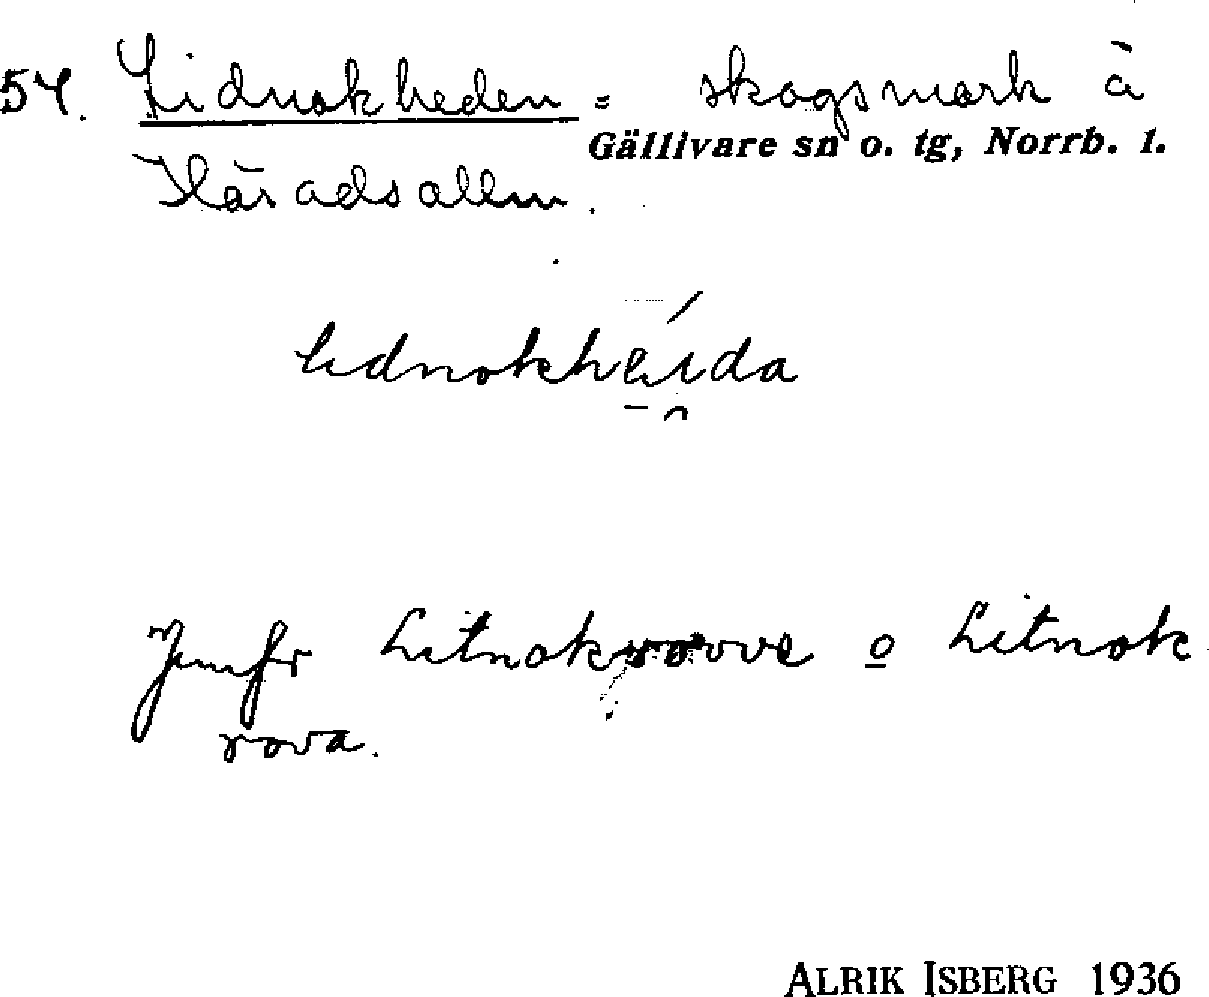 54. Lidnokheden = skogsmark å
Gällivare sn o. tg, Norrb. l.
Häradsallm.
lidnokhɛida
Jmfr Litnokvovve o Litnok
rova.
ALRIK ISBERG 1936